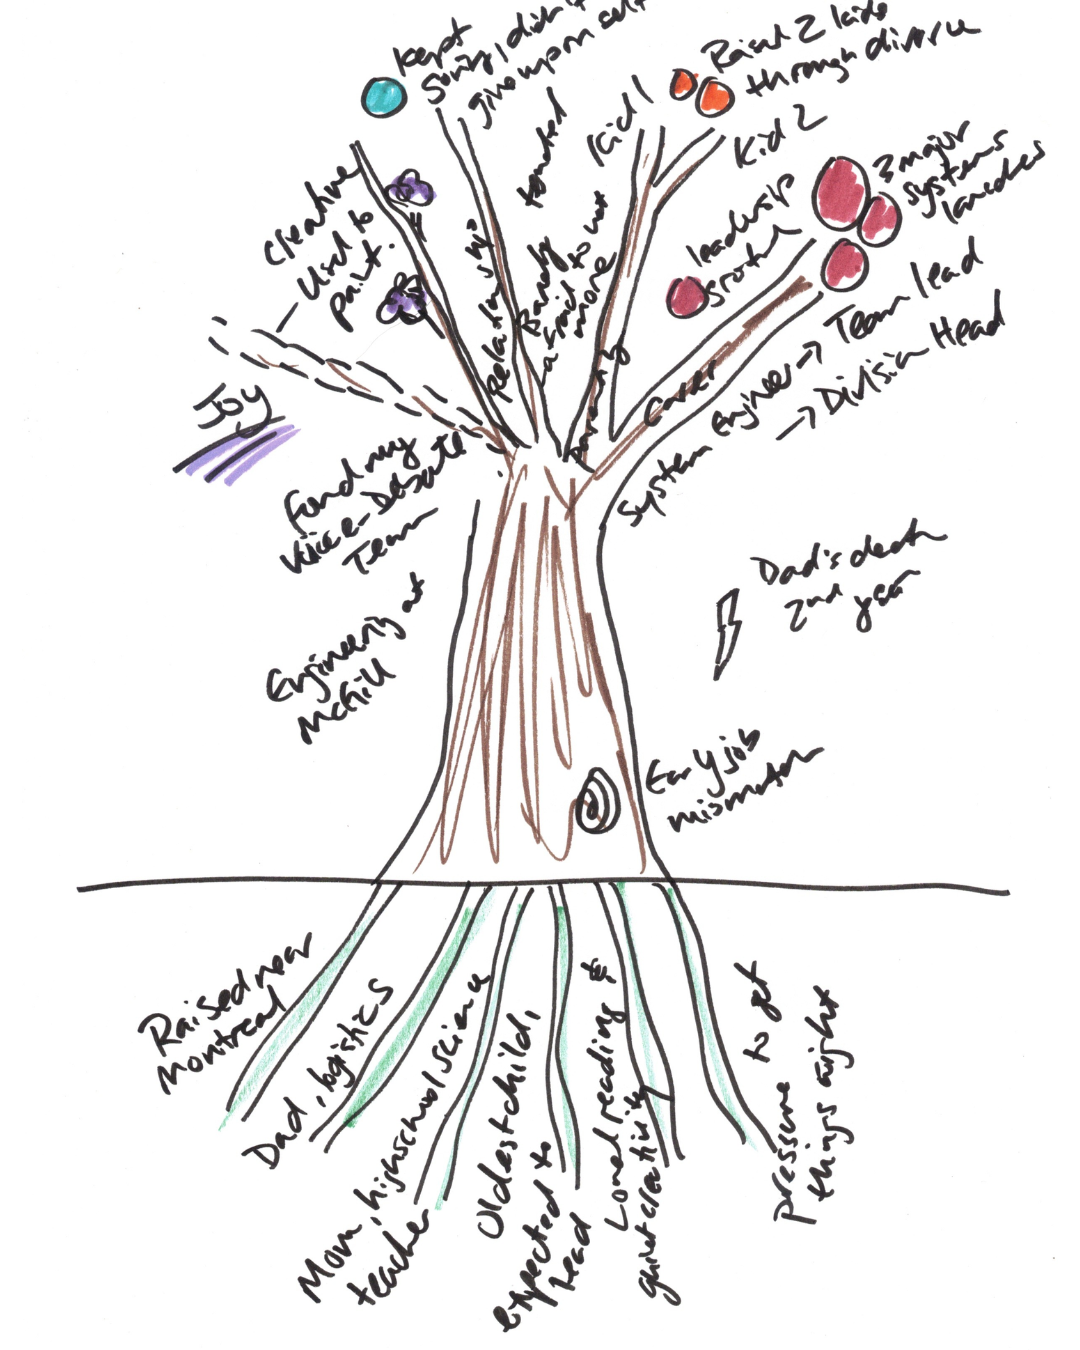 Kept
going, didn't
give up on self
Raised 2 kids
through divorce
Kid 1
Kid 2
3 major
systems
launches
leadership
growth
Creative
- Used to
paint.
Relationships
Barely
afraid to not
more
wanted
Parenting
Career
System Engineer → Team lead
→ Division Head
Joy
Found my
voice - Debate
Team
Engineering at
McGill
Dad's death
2nd
year
Early job
mismatch
Raised near
Montreal
Dad, logistics
Mom, highschool science
teacher
Oldest child,
expected to
lead
Loved reading &
quiet creativity
pressure to get
things right